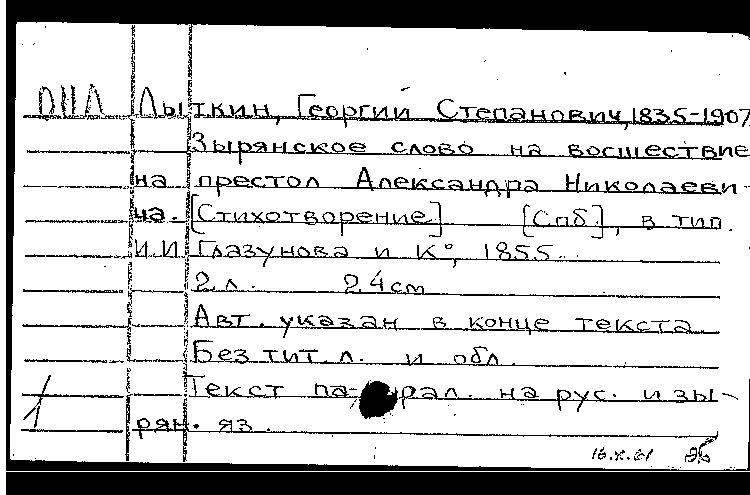 ОИЛ Лыткин, Георгий Степанович, 1835-1907
Зырянское слово на восшествие
на престол Александра Николаеви-
ча. [Стихотворение] [Спб.], в тип.
И.И. Глазунова и К°, 1855.
2 л. 24 см
Авт. указан в конце текста.
Без тит. л. и обл.
Текст па рал. на рус. и зы-
рян. яз.
16.X.61